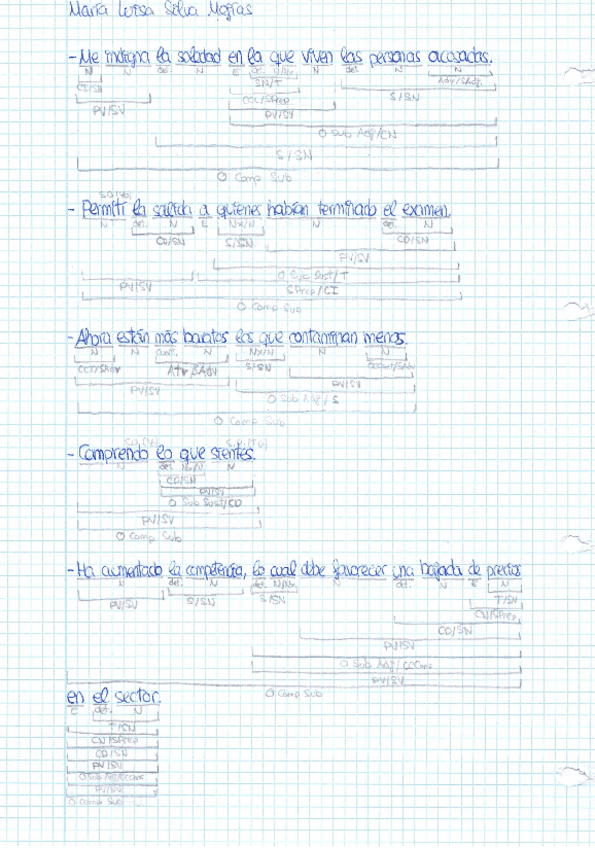 María Luisa Silva Mogias
- Me indigna la soledad en la que viven las personas acosadas.
N N det. N E det. N/Nx N det. N N
CD/SN SN/T Adv/SAdj.
CCL/SPrep S/SN
PV/SV PV/SV
O Sub Adj/CN
S/SN
O Comp Sub
- Permití la salida a quienes habían terminado el examen.
N det. N E Nx/N N det. N
CD/SN S/SN CD/SN
PV/SV
O Sub Sust/T
PV/SV SPrep/CI
O Comp Sub
- Ahora están más baratos los que contaminan menos.
N N cuant. N Nx/N N N
S/SN
PV/SV PV/SV
O Sub Adj/S
O Comp Sub
- Comprendo lo que sientes.
N det. Nx/N N
CD/SN
PV/SV
O Sub Sust/CD
PV/SV
O Comp Sub
- Ha aumentado la competencia, lo cual debe favorecer una bajada de precios
N det. N det. N/Nx N det. N E N
PV/SV S/SN S/SN T/SN
CN/SPrep
CD/SN
PV/SV
O Sub Adj/CCConc
PV/SV
O Comp Sub
en el sector.
E det. N
T/SN
CN/SPrep
CD/SN
PV/SV
O Sub Adj/CCConc
PV/SV
O Comp Sub